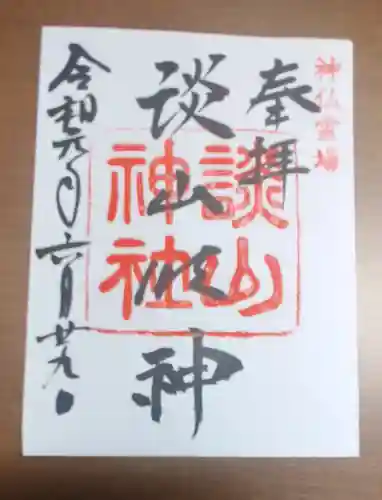 神仏霊場
奉拝
談山権神
談山
神社
令和元年六月廿九日